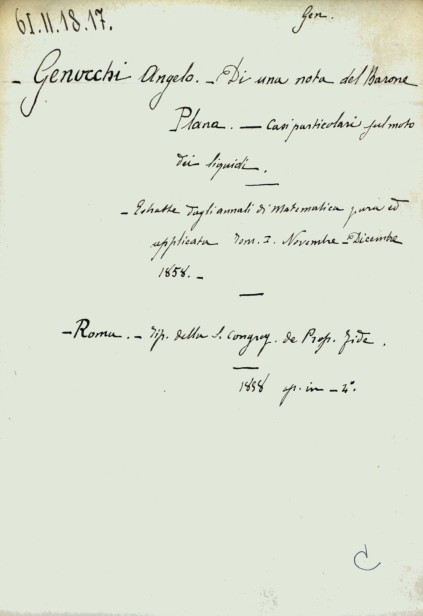 61.II.18.17.
Gen.
- Genocchi Angelo. - Di una nota del Barone
Plana. - Casi particolari sul moto
dei liquidi.
- Estratte dagli annali di Matematica pura ed
applicata Tom. I. Novembre - Dicembre
1858. -
- Roma. - Tip. della S. Congreg. de Prop. Fide.
1858 op. in - 4°.
C